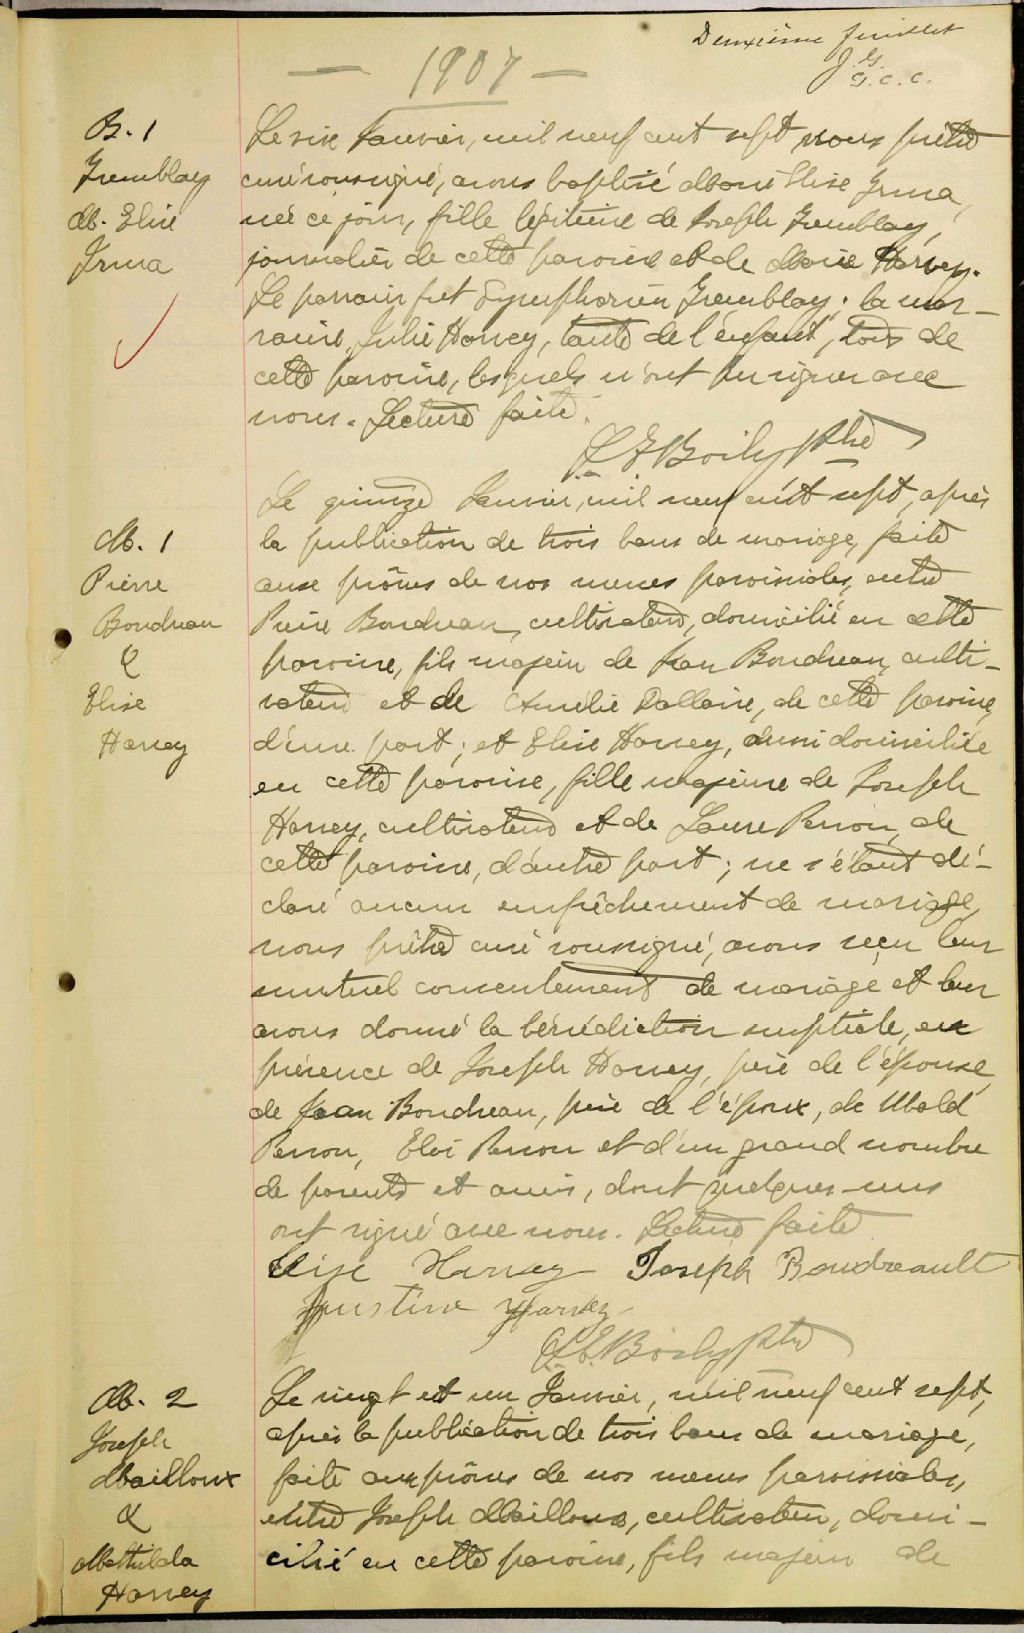 Deuxième feuillet
J. G.
G. C. C.
— 1907 —
B. 1
Tremblay
M. Elise
Irma
Le six Janvier, mil neuf cent sept nous prêtre
curé soussigné, avons baptisé Marie Elise Irma,
née ce jour, fille légitime de Joseph Tremblay,
journalier de cette paroisse et de Marie Harvey.
Le parrain fut Symphorien Tremblay; la mar-
raine, Julie Harvey, tante de l'enfant, tous de
cette paroisse, lesquels n'ont pu signer avec
nous. Lecture faite.
Boily Ptre
M. 1
Pierre
Boudreau
&
Elise
Harvey
Le quinze Janvier, mil neuf cent sept, après
la publication de trois bans de mariage, faite
aux prônes de nos messes paroissiales, entre
Pierre Boudreau, cultivateur, domicilié en cette
paroisse, fils majeur de Jean Boudreau, culti-
vateur et de Amélie Dallaire, de cette paroisse,
d'une part; et Elise Harvey, aussi domiciliée
en cette paroisse, fille majeure de Joseph
Harvey, cultivateur et de Laure Perron, de
cette paroisse, d'autre part; ne s'étant dé-
claré aucun empêchement de mariage,
nous prêtre curé soussigné, avons reçu leur
mutuel consentement de mariage et leur
avons donné la bénédiction nuptiale, en
présence de Joseph Harvey, père de l'épouse,
de Jean Boudreau, père de l'époux, de Ubald
Perron, Eloi Perron et d'un grand nombre
de parents et amis, dont quelques-uns
ont signé avec nous. Lecture faite
Elise Harvey Joseph Boudreault
Justine Harvey
Boily Ptre
M. 2
Joseph
Mailloux
&
Mathilda
Harvey
Le vingt et un Janvier, mil neuf cent sept,
après la publication de trois bans de mariage,
faite aux prônes de nos messes paroissiales,
entre Joseph Mailloux, cultivateur, domi-
cilié en cette paroisse, fils majeur de